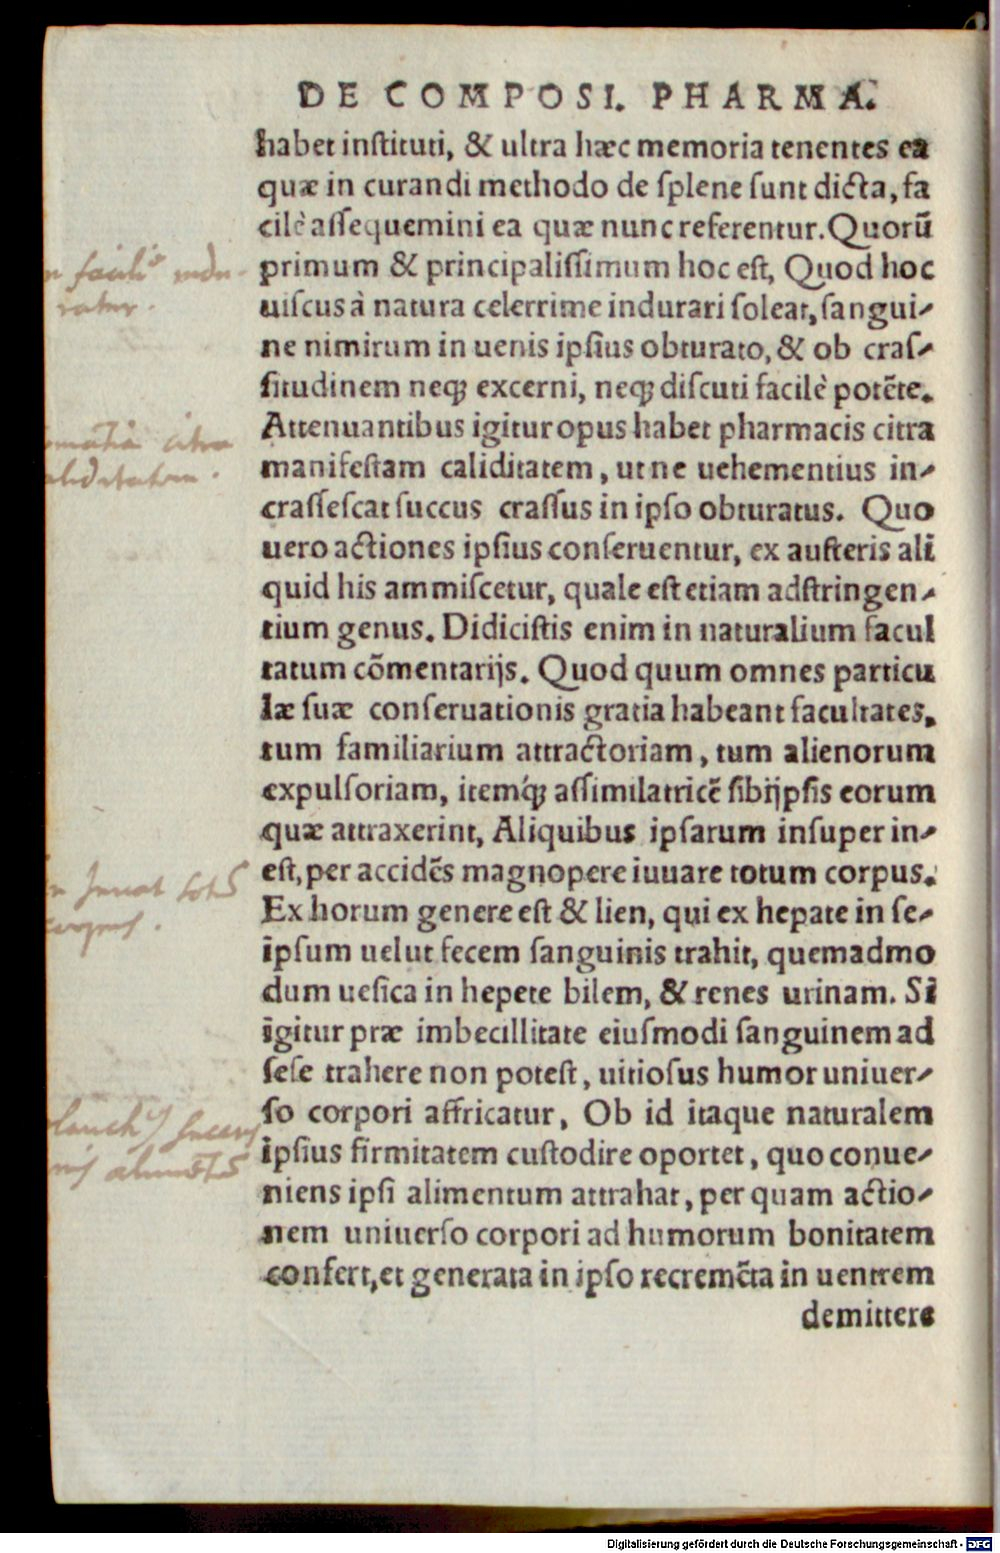 DE COMPOSI. PHARMA.
habet instituti, & ultra hæc memoria tenentes ea
quæ in curandi methodo de splene sunt dicta, fa
cilè assequemini ea quæ nunc referentur. Quorũ
primum & principalissimum hoc est, Quod hoc
uiscus à natura celerrime indurari soleat, sangui-
ne nimirum in uenis ipsius obturato, & ob cras-
situdinem neqꝫ excerni, neqꝫ discuti facilè potẽte.
Attenuantibus igitur opus habet pharmacis citra
manifestam caliditatem, ut ne uehementius in-
crassescat succus crassus in ipso obturatus. Quo
uero actiones ipsius conseruentur, ex austeris ali
quid his ammiscetur, quale est etiam adstringen-
tium genus. Didicistis enim in naturalium facul
tatum cõmentarijs. Quod quum omnes particu
læ suæ conseruationis gratia habeant facultates,
tum familiarium attractoriam, tum alienorum
expulsoriam, itemq́ꝫ assimilatricẽ sibijpsis eorum
quæ attraxerint, Aliquibus ipsarum insuper in-
est, per accidẽs magnopere iuuare totum corpus.
Ex horum genere est & lien, qui ex hepate in se-
ipsum uelut fecem sanguinis trahit, quemadmo
dum uesica in hepete bilem, & renes urinam. Si
igitur præ imbecillitate eiusmodi sanguinem ad
sese trahere non potest, uitiosus humor uniuer-
so corpori affricatur, Ob id itaque naturalem
ipsius firmitatem custodire oportet, quo conue-
niens ipsi alimentum attrahat, per quam actio-
nem uniuerso corpori ad humorum bonitatem
confert, et generata in ipso recremẽta in uentrem
demittere
facilè indu-
ratur.
citra
corpus.
Digitalisierung gefördert durch die Deutsche Forschungsgemeinschaft - DFG